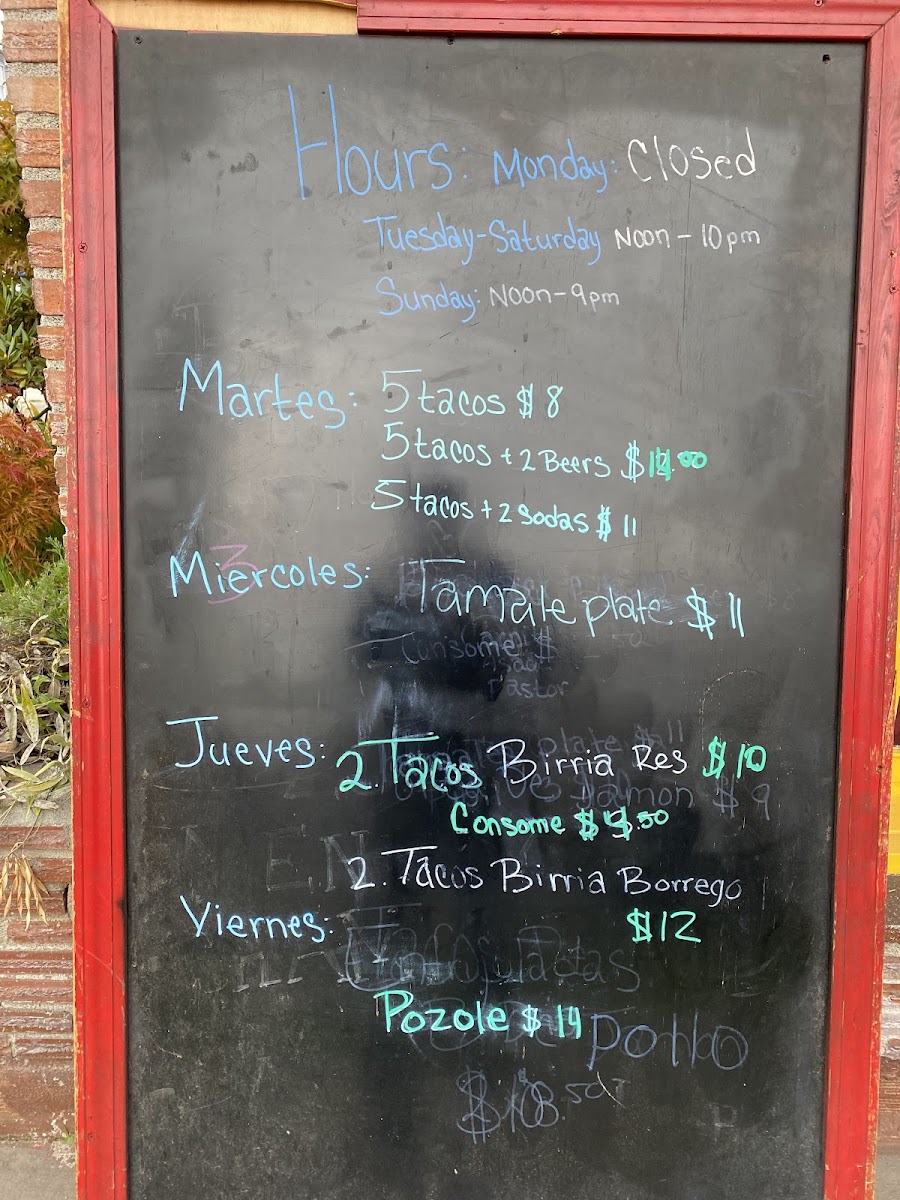 Hours: Monday: Closed
Tuesday-Saturday Noon - 10pm
Sunday: Noon-9pm
Martes: 5 tacos $ 8
5 tacos + 2 Beers $14.00
5 tacos + 2 Sodas $ 11
Miercoles: Tamale plate $ 11
Consome $
Pastor
Jueves: 2. Tacos Birria Res $10
Consome $4.50
2. Tacos Birria Borrego
Viernes: $12
Pozole $ 14